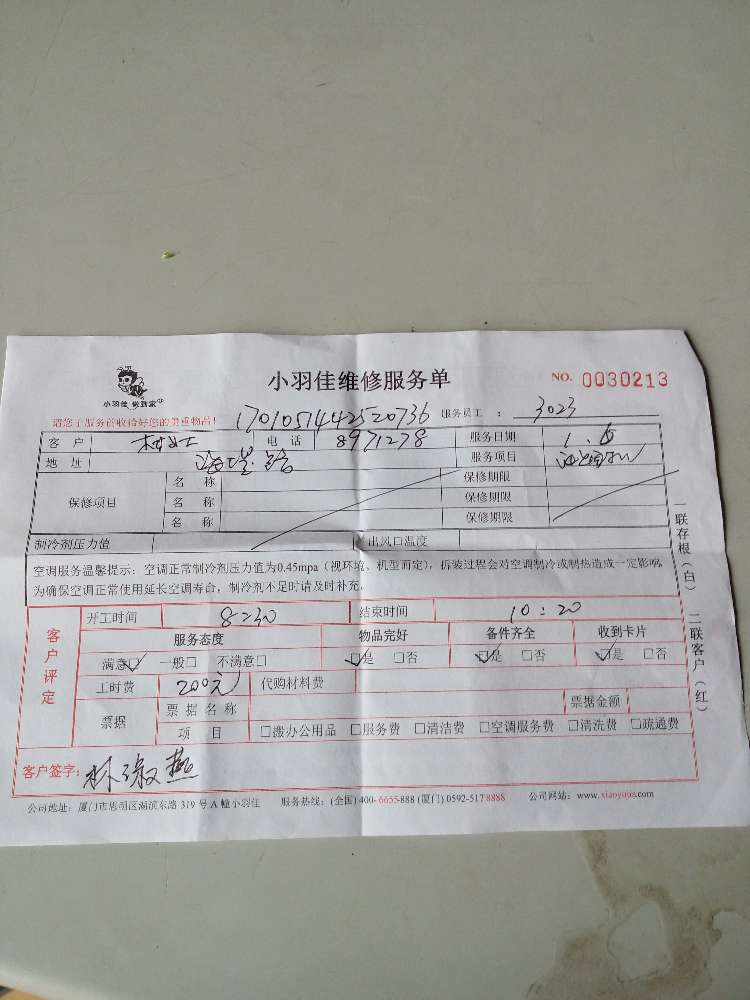 小羽佳 做到家
小羽佳维修服务单
NO. 0030213
请您于服务前收拾好您的贵重物品!
1701051442520736 服务员工 : 3023
客户 林女士 电话 8971278 服务日期 1.6
地址 海堤路 服务项目
保修项目 名称 保修期限
名称 保修期限
名称 保修期限
制冷剂压力值 出风口温度
空调服务温馨提示：空调正常制冷剂压力值为0.45mpa（视环境、机型而定），拆装过程会对空调制冷或制热造成一定影响，
为确保空调正常使用延长空调寿命，制冷剂不足时请及时补充。
一联存根（白） 二联客户（红）
客户评定
开工时间 8:30 结束时间 10:20
服务态度 物品完好 备件齐全 收到卡片
满意☑ 一般□ 不满意□ ☑是 □否 ☑是 □否 ☑是 □否
工时费 200元 代购材料费
票据 票据名称 票据金额
项目 □搬办公用品 □服务费 □清洁费 □空调服务费 □清洗费 □疏通费
客户签字：林淑燕
公司地址：厦门市思明区湖滨东路 319 号 A 幢小羽佳 服务热线：(全国) 400-6655-888 (厦门) 0592-517 8888 公司网站：www.xiaoyujia.com